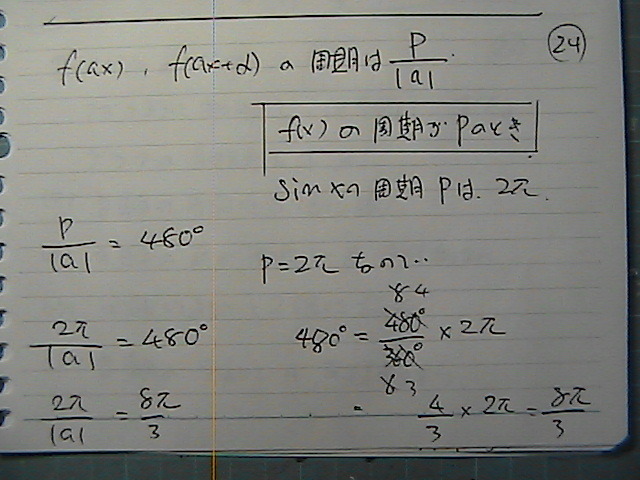 ㉔
f(ax), f(ax+α) の 周期は P/|a|.
f(x) の 周期が Pのとき
sin xの 周期 Pは、2π.
P/|a| = 480°
P=2π なので‥
2π/|a| = 480°
84
480° = 480°/360° × 2π
63
2π/|a| = 8π/3
= 4/3 × 2π = 8π/3